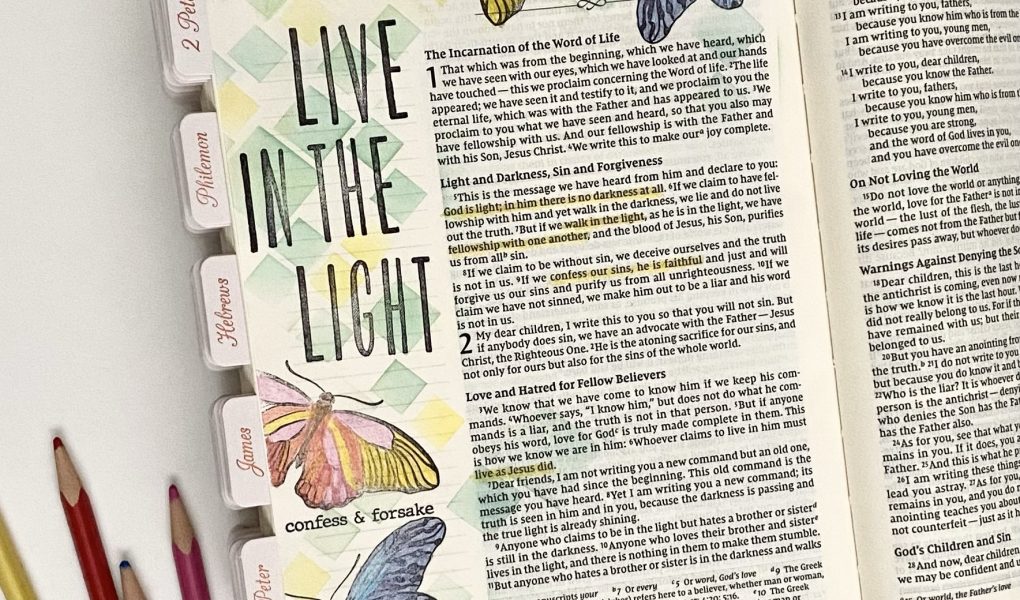 2 Pete
Philemon
Hebrews
James
Peter
LIVE
IN THE
LIGHT
confess & forsake
The Incarnation of the Word of Life
1 That which was from the beginning, which we have heard, which
we have seen with our eyes, which we have looked at and our hands
have touched — this we proclaim concerning the Word of life. ²The life
appeared; we have seen it and testify to it, and we proclaim to you the
eternal life, which was with the Father and has appeared to us. ³We
proclaim to you what we have seen and heard, so that you also may
have fellowship with us. And our fellowship is with the Father and
with his Son, Jesus Christ. ⁴We write this to make ourᵃ joy complete.
Light and Darkness, Sin and Forgiveness
⁵This is the message we have heard from him and declare to you:
God is light; in him there is no darkness at all. ⁶If we claim to have fel-
lowship with him and yet walk in the darkness, we lie and do not live
out the truth. ⁷But if we walk in the light, as he is in the light, we have
fellowship with one another, and the blood of Jesus, his Son, purifies
us from allᵇ sin.
⁸If we claim to be without sin, we deceive ourselves and the truth
is not in us. ⁹If we confess our sins, he is faithful and just and will
forgive us our sins and purify us from all unrighteousness. ¹⁰If we
claim we have not sinned, we make him out to be a liar and his word
is not in us.
2 My dear children, I write this to you so that you will not sin. But
if anybody does sin, we have an advocate with the Father — Jesus
Christ, the Righteous One. ²He is the atoning sacrifice for our sins, and
not only for ours but also for the sins of the whole world.
Love and Hatred for Fellow Believers
³We know that we have come to know him if we keep his com-
mands. ⁴Whoever says, “I know him,” but does not do what he com-
mands is a liar, and the truth is not in that person. ⁵But if anyone
obeys his word, love for Godᶜ is truly made complete in them. This
is how we know we are in him: ⁶Whoever claims to live in him must
live as Jesus did.
⁷Dear friends, I am not writing you a new command but an old one,
which you have had since the beginning. This old command is the
message you have heard. ⁸Yet I am writing you a new command; its
truth is seen in him and in you, because the darkness is passing and
the true light is already shining.
⁹Anyone who claims to be in the light but hates a brother or sisterᵈ
is still in the darkness. ¹⁰Anyone who loves their brother and sisterᵉ
lives in the light, and there is nothing in them to make them stumble.
¹¹But anyone who hates a brother or sister is in the darkness and walks
ᵇ7 Or every ᶜ5 Or word, God's love ᵈ9 The Greek
refers here to a believer, whether man or woman,
¹³I am writing to you, fathers,
because you know him who is from the
I am writing to you, young men,
because you have overcome the evil on
¹⁴I write to you, dear children,
because you know the Father.
I write to you, fathers,
because you know him who is from t
I write to you, young men,
because you are strong,
and the word of God lives in you,
and you have overcome the evil one
On Not Loving the World
¹⁵Do not love the world or anything
the world, love for the Fatherᵃ is not in
world — the lust of the flesh, the lus
life — comes not from the Father but f
its desires pass away, but whoever do
Warnings Against Denying the So
¹⁸Dear children, this is the last h
the antichrist is coming, even now
is how we know it is the last hour.
did not really belong to us. For if th
have remained with us; but their
belonged to us.
²⁰But you have an anointing fro
the truth.ᵇ ²¹I do not write to you
but because you do know it and b
²²Who is the liar? It is whoever d
person is the antichrist — deny
who denies the Son has the Fath
has the Father also.
²⁴As for you, see that what yo
mains in you. If it does, you a
Father. ²⁵And this is what he p
²⁶I am writing these things
lead you astray. ²⁷As for you,
remains in you, and you do n
anointing teaches you about
not counterfeit — just as it h
God's Children and Sin
²⁸And now, dear children
we may be confident and u
Or world, the Father's love